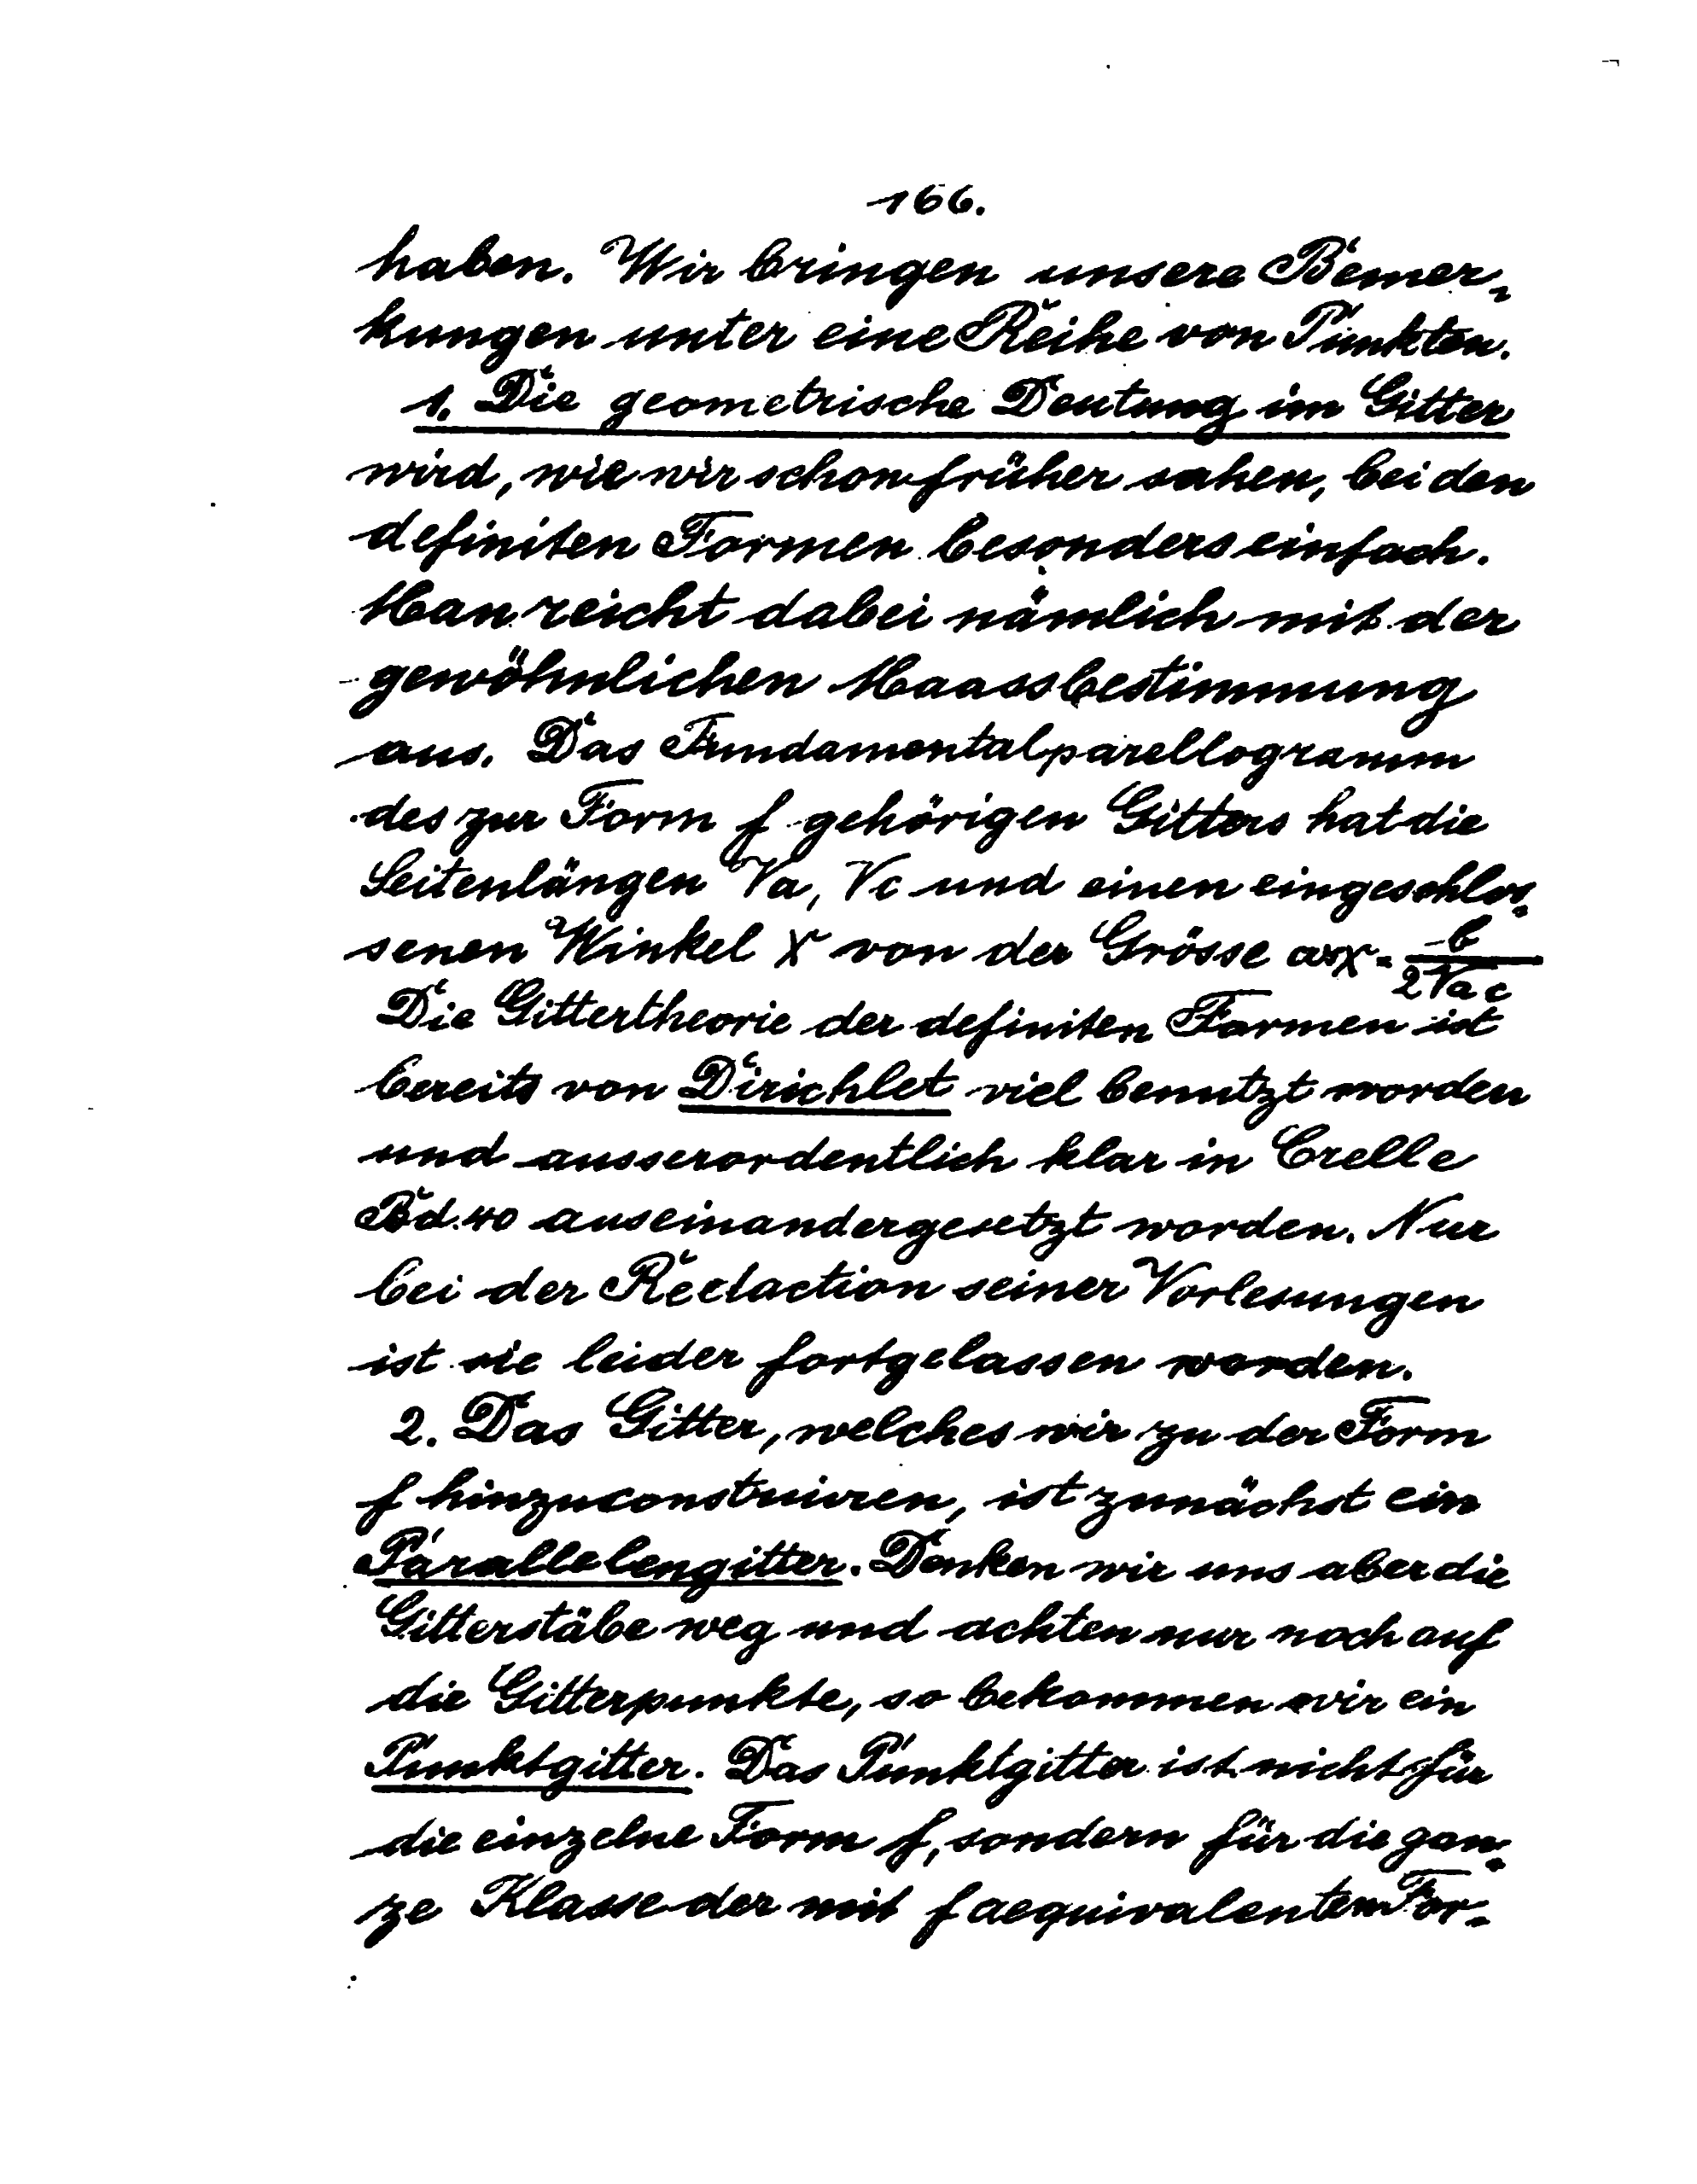 166.
haben. Wir bringen unsere Bemer-
kungen unter eine Reihe von Punkten.
1. Die geometrische Deutung im Gitter
wird, wie wir schon früher sahen, bei den
definiten Formen besonders einfach.
Man reicht dabei nämlich mit der
gewöhnlichen Maassbestimmung
aus. Das Fundamentalparellogramm
des zur Form f gehörigen Gitters hat die
Seitenlängen √a, √c und einen eingeschlos-
senen Winkel χ von der Grösse cos χ = -b / 2√ac
Die Gittertheorie der definiten Formen ist
bereits von Dirichlet viel benutzt worden
und ausserordentlich klar in Crelle
Bd. 40 auseinandergesetzt worden. Nur
bei der Redaction seiner Vorlesungen
ist sie leider fortgelassen worden.
2. Das Gitter, welches wir zu der Form
f hinzuconstruiren, ist zunächst ein
Parallelengitter. Denken wir uns aber die
Gitterstäbe weg und achten nur noch auf
die Gitterpunkte, so bekommen wir ein
Punktgitter. Das Punktgitter ist nicht für
die einzelne Form f, sondern für die gan-
ze Klasse der mit f aequivalenten For-